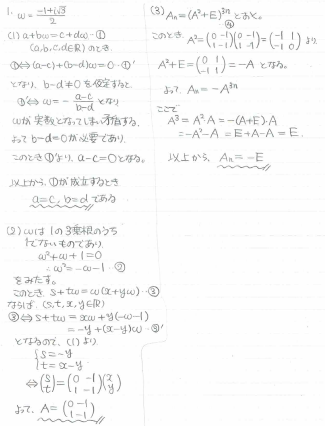 1. ω = (-1+i√3)/2
(1) a+bω = c+dω …①
(a,b,c,d∈ℝ) のとき,
①⇔(a-c)+(b-d)ω=0 …①'
となり, b-d≠0を仮定すると
①'⇔ω=-(a-c)/(b-d) となり
ωが実数となってしまい矛盾する.
よって b-d=0が必要であり,
このとき①'より, a-c=0となる.
以上から, ①が成立するとき
a=c, b=d である
(2) ωは1の3乗根のうち
1でないものであり
ω²+ω+1=0
∴ω²=-ω-1 …②
をみたす。
このとき, s+tω=ω(x+yω) …③
ならば, (s,t,x,y∈ℝ)
③⇔s+tω=xω+y(-ω-1)
=-y+(x-y)ω …③'
となるので, (1)より
{s=-y
t=x-y
⇔(s t)=(0 -1 1 -1)(x y)
よって, A=(0 -1 1 -1)
(3) Aₙ=(A²+E)³ⁿ とおく。
④
このとき A²=(0 -1 1 -1)(0 -1 1 -1)=(-1 1 -1 0) より
A²+E=(0 1 -1 1)=-A となる。
よって, Aₙ=-A³ⁿ
ここで
A³=A²A=-(A+E)・A
=-A²-A=E+A-A=E.
以上から, Aₙ=-E